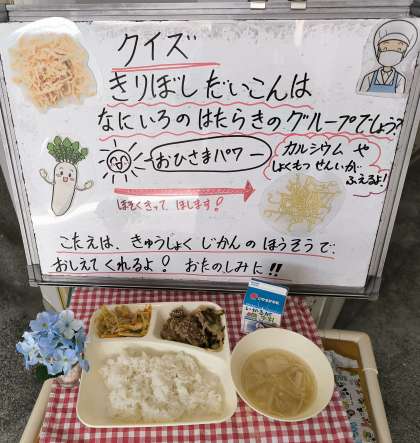 クイズ
きりぼしだいこんは
なにいろのはたらきのグループでしょう?
おひさまパワー
カルシウムや
しょくもつせんいが
ふえるよ!
ほそくきって、ほします!
こたえは、きゅうしょくじかんのほうそうで、
おしえてくれるよ! おたのしみに!!